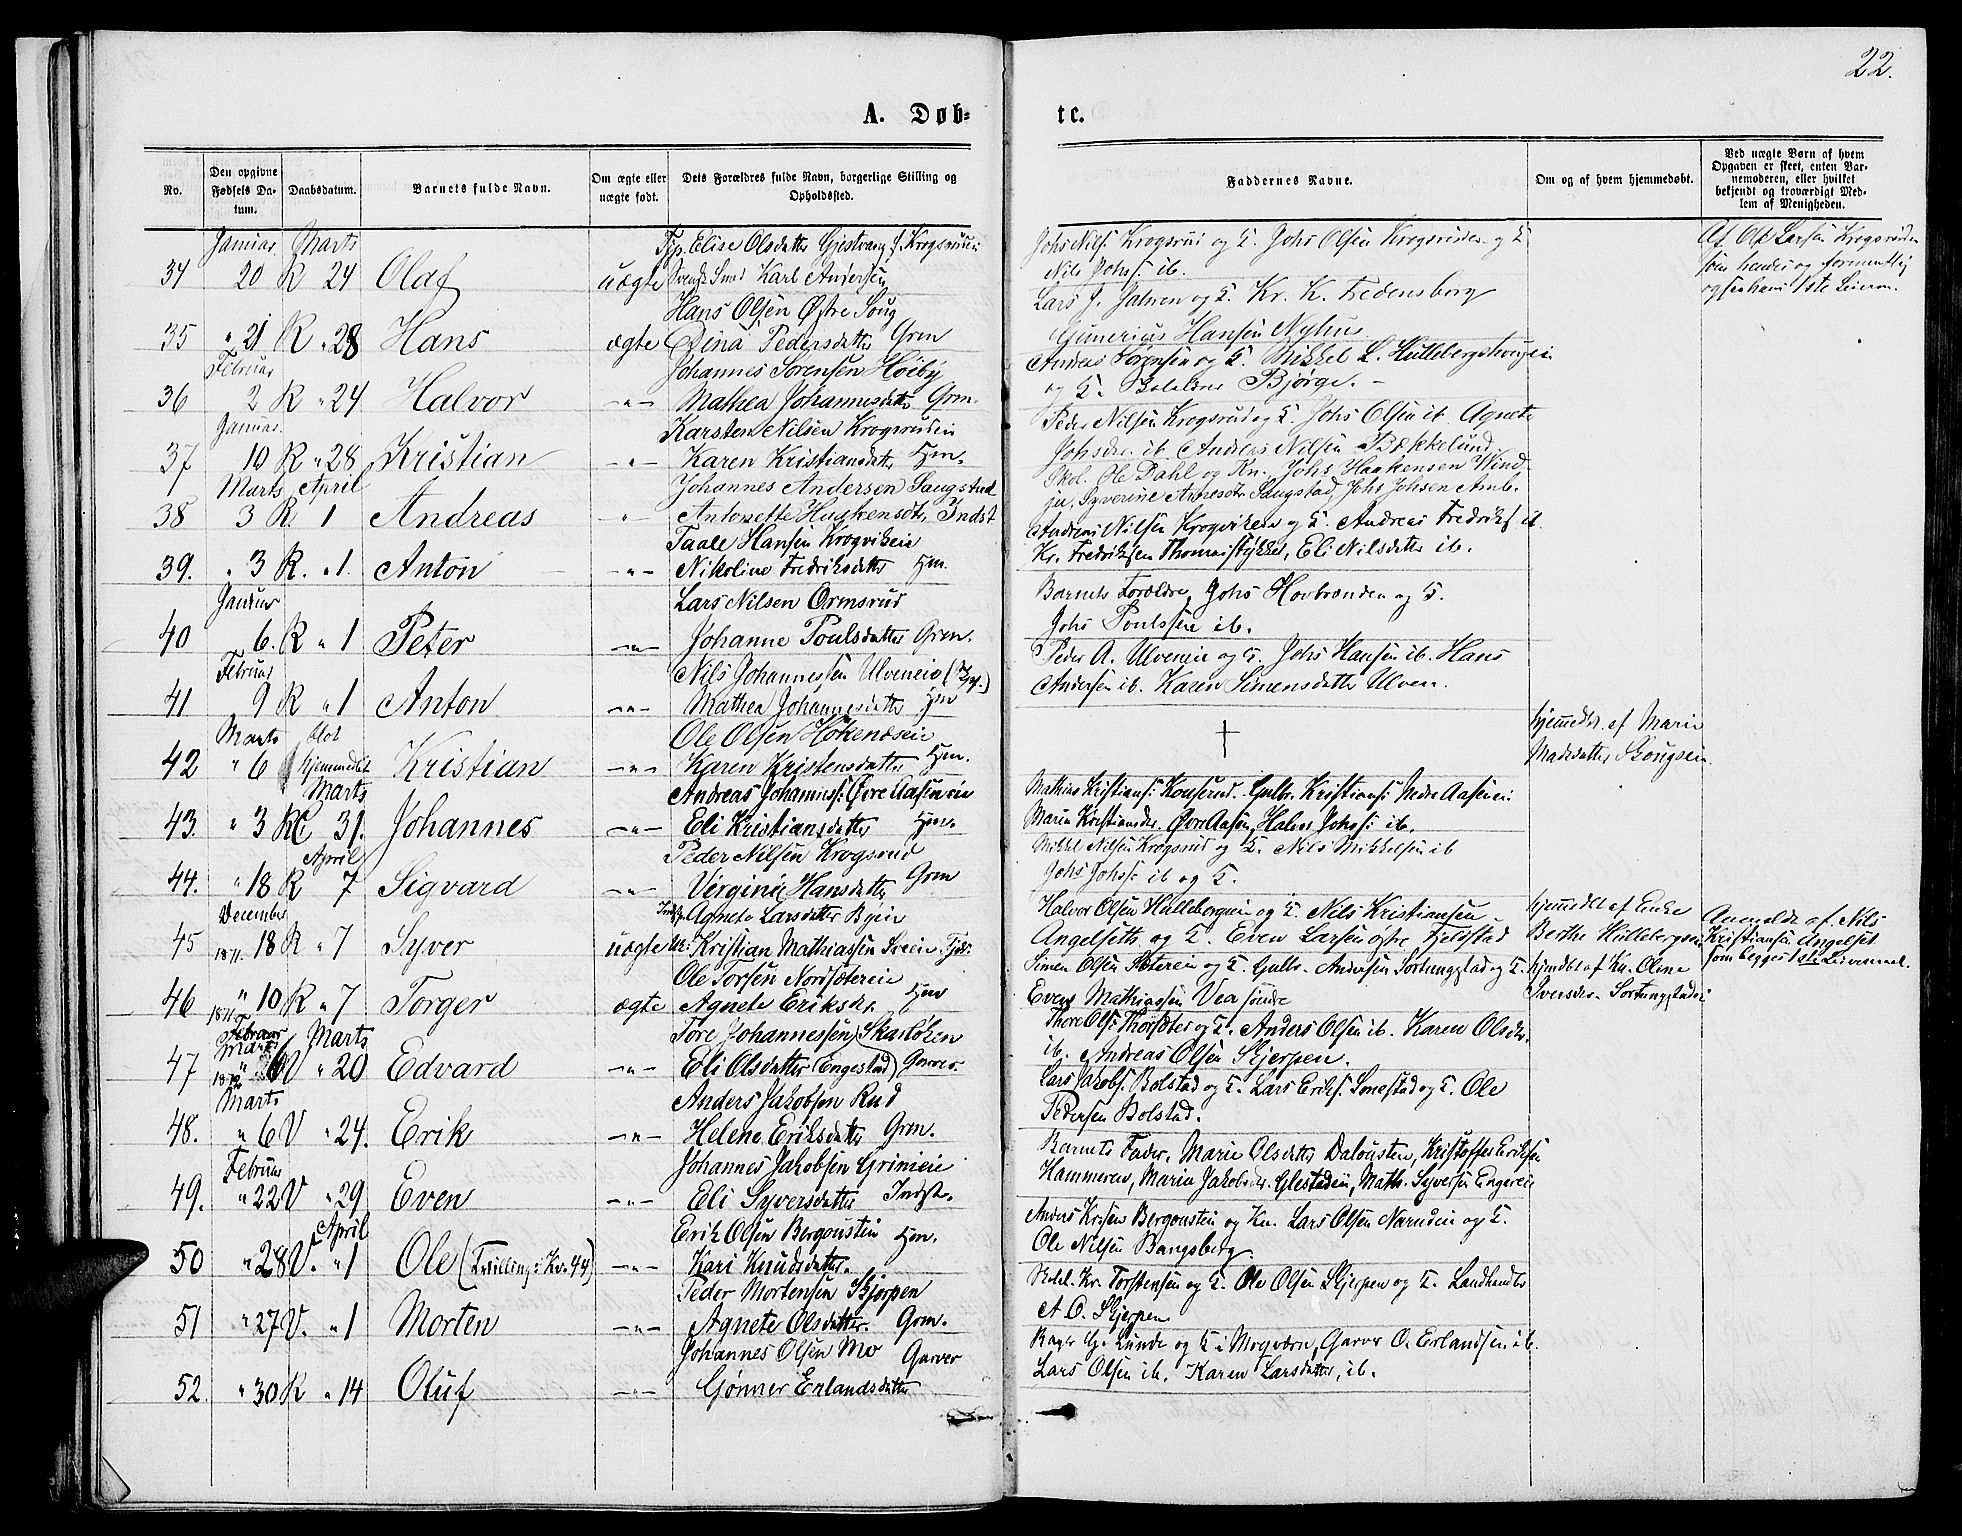 22.
A. Døb-
te.
No.
Den opgivne Fødsels Datum.
Daabsdatum.
Barnets fulde Navn.
Om ægte eller uægte født.
Dets Forældres fulde Navn, borgerlige Stilling og Opholdssted.
Faddernes Navne.
Om og af hvem hjemmedøbt.
Ved uægte Børn af hvem Opgaven er skeet, enten Barnemoderen, eller hvilket bekjendt og troværdigt Medlem af Menigheden.
Januar Marts
34 20 R 24 Olaf uægte
Elise Olsdatter Gjestvang
Smed Karl Andersen
Johs Nils. Krogsrud og K. Johs Olsen Krogsruden og K
Nils Johs. ib.
Af Ole Larsen Krogsruden
35 " 21 R " 28 Hans ægte
Hans Olsen Østre Soug
Dina Pedersdatter Grm
Lars J. Jahren og K. Kr. K. Fredensborg
Gunerius Hansen Nyhus
Februar
36 2 R " 24 Halvor -"-
Johannes Sorensen Høiby
Mathea Johannesdatter Grm.
Andreas Sorensen og K. Mikkel L. Hullebergshaugen
og K. Bjørge. -
Januar
37 10 R " 28 Kristian -"-
Karsten Nilsen Krogsruden
Karen Kristiansdatter Hm.
Peder Nilsen Krogsrud og K. Johs Olsen ib. Agnete
Johsdr. ib. Andreas Nilsen Bækkelund
Marts April
38 3 R 1 Andreas -"-
Johannes Andersen Saugstad
Antonette Haakensdtr. Indst
Ole Dahl og Kn. Johs Haakensen Wind
ju, Syverine Arnesdtr Saugstad, Johs Johsen Amb.
39. " 3 R. " 1. Anton -"-
Taale Hansen Krogvikeie
Nikoline Fredriksdatter Hm.
Andreas Nilsen Krogvikeie og K. Andreas Fredriks. ib.
Kr. Fredriksen Thomasstykket, Eli Nilsdatter ib.
Januar
40 6. R " 1 Peter -"-
Lars Nilsen Ormsrud
Johanne Poulsdatter Grm.
Barnets Forældre, Johs Hovbrænden og K.
Johs Poulssen ib.
Februar
41 9 R " 1 Anton -"-
Nils Johannessen Ulveneie
Mathea Johannesdatter Hm
Peder A. Ulveneie og K. Johs Hansen ib. Hans
Andersen ib. Karen Simensdatter Ulven.
Marts
42 " 6 hjemmedøbt Kristian -"-
Ole Olsen Hokenæseie
Karen Kristensdatter Hm.
hjemmedbt. af Marie
Madsdatter Skougseie.
Marts
43. " 3 R 31. Johannes -"-
Andreas Johanness. Øvre Aaseneie
Eli Kristiansdatter Hm.
Mathias Kristians. Konserud. Gulbr. Kristians. Nedre Aaseneie
Maria Kristiansdr. Øvre Aasen, Halvor Johs. ib.
April
44. " 18 R 7 Sigvard -"-
Peder Nilsen Krogsrud
Virginie Hansdatter Grm
Mikkel Nilsen Krogsrud og K. Nils Mikkelsen ib
Johs Johs. ib og K.
December
45 1871. 18 R " 7 Syver uægte
Agnete Larsdatter Byeie
Kristian Mathiassen Sveen
Halvor Olsen Hullebergeie og K. Nils Kristiansen
Angelseth og K. Even Larsen østre Fjeldstad
hjemmedbt af Enke
Berthe Hullebergeie
Anmeldt af Nils
Kristiansen Angelset
som begges 1ste Leiermaal.
46 1871 " 10 R " 7 Torger ægte
Ole Torsen Nordsæterеie
Agnete Eriksdr. Hm
Simen Olsen Sætereie og K. Gulbr. Andersen Sortungstad og K.
Even Mathiassen Vea søndre
hjemdbt af Kn. Oline
Iversdr. Sortungstadeie
Februar Marts Marts
47 1872 " 6 V " 20 Edvard -"-
Tore Johannessen (Skarløken
Eli Olsdatter (Engestad) Garver.
Thore Ols. Thorsæter og K. Anders Olsen ib. Karen Olsdr.
ib. Andreas Olsen Skjerpen.
Marts
48. " 6 V " 24. Erik -"-
Anders Jakobsen Rud
Helene Eriksdatter Grm.
Lars Jakobs. Bolstad og K. Lars Eriks. Smestad og K. Ole
Pedersen Bolstad.
Februar
49. " 22 V " 29 Even -"-
Johannes Jakobsen Grimeie
Eli Syversdatter Indst.
Barnets Fader, Marie Olsdatter Dalousten, Kristoffer Eriksen
Hammeren, Maria Jakobsdr. Glestadeie, Math. Syversen Engereie
April
50 " 28 V. " 1 Ole (Tvilling: Kv. 44) -"-
Erik Olsen Bergousten Hm.
Kari Knudsdatter.
Anders Bergousten og Kn. Lars Olsen Narudeie og K.
Ole Nilsen Bangsberg.
51 " 27 V. " 1 Morten -"-
Peder Mortensen Skjerpen
Agnete Olsdatter. Grm.
Kr. Torstensen og K. Ole Olsen Skjerpen og K. Landhandler
A O. Skjerpen
52. " 30 R " 14 Oluf -"-
Johannes Olsen Mo Garver
Gønner Erlandsdatter
Lunde og K i Mogværn, Garver O. Erlandsen ib.
Lars Olsen ib. Karen Larsdatter, ib.